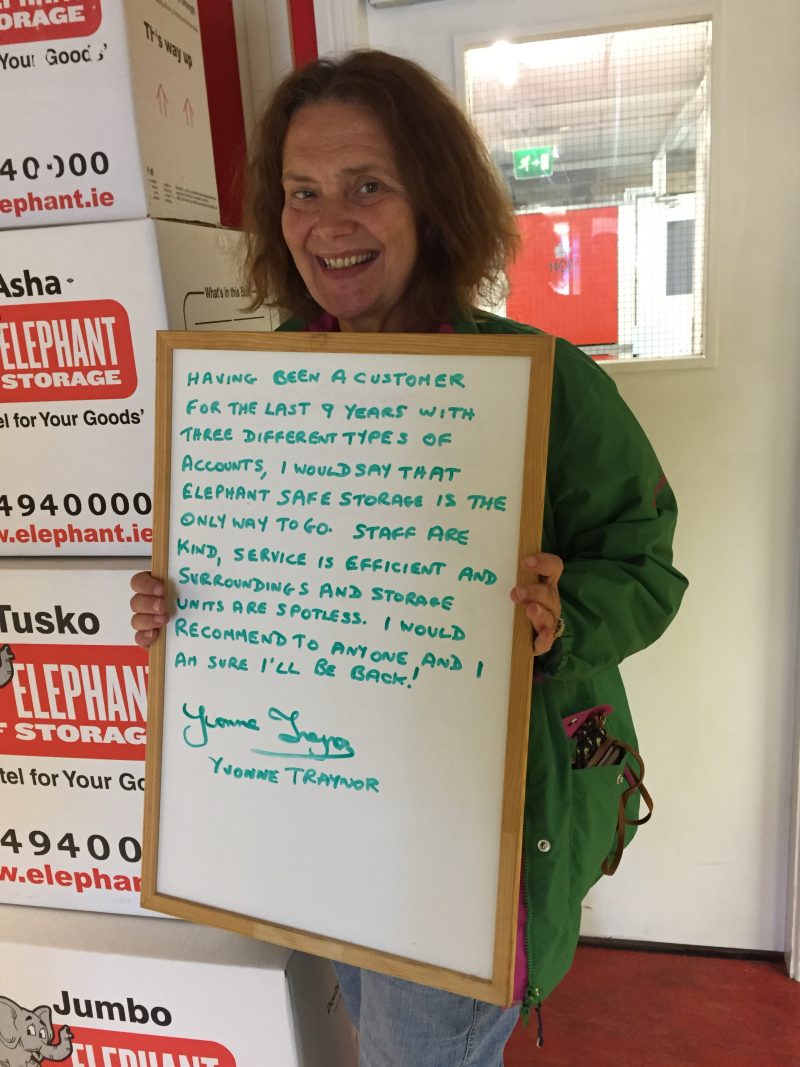 ORAGE
Your Goods'
Th's way up
940000
elephant.ie
Asha
What's in this Box
ELEPHANT
STORAGE
el for Your Goods'
4940000
w.elephant.ie
Tusko
ELEPHAN
F STORAG
tel for Your Go
494000
w.elephan
Jumbo
ELEPHANT
HAVING BEEN A CUSTOMER
FOR THE LAST 9 YEARS WITH
THREE DIFFERENT TYPES OF
ACCOUNTS, I WOULD SAY THAT
ELEPHANT SAFE STORAGE IS THE
ONLY WAY TO GO. STAFF ARE
KIND, SERVICE IS EFFICIENT AND
SURROUNDINGS AND STORAGE
UNITS ARE SPOTLESS. I WOULD
RECOMMEND TO ANYONE, AND I
AM SURE I'LL BE BACK!
Yvonne Traynor
YVONNE TRAYNOR